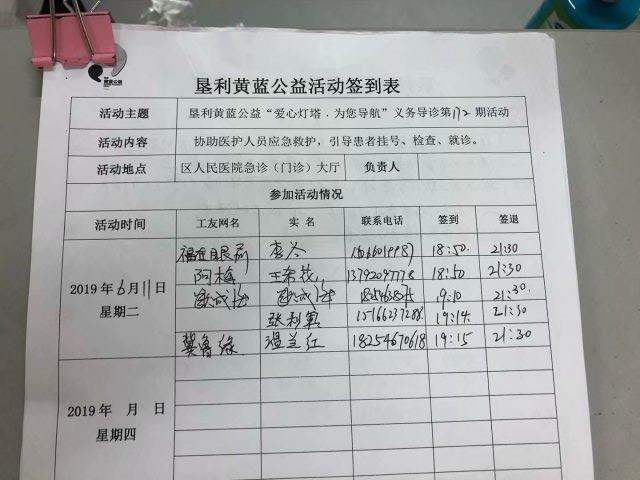 垦利黄蓝公益活动签到表
活动主题 垦利黄蓝公益“爱心灯塔．为您导航”义务导诊第172期活动
活动内容 协助医护人员应急救护，引导患者挂号、检查、就诊。
活动地点 区人民医院急诊（门诊）大厅 负责人
参加活动情况
活动时间 工友网名 实名 联系电话 签到 签退
18:50. 21:30
阿梅 13792097778 18:50 21:30
2019年6月11日 19:10 21:30.
星期二 张利军 15166237288 19:14 21:30
冀鲁缘 温兰红 18254670618 19:15 21:30
2019年 月 日
星期四